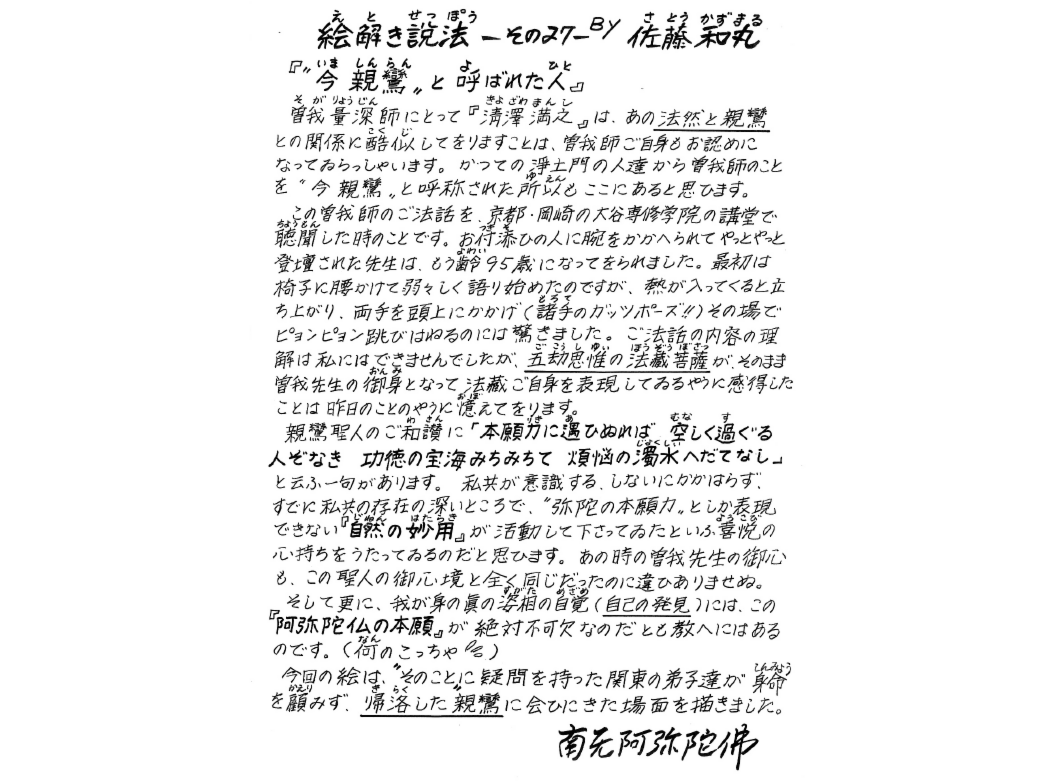 絵解き説法 ―その27― BY 佐藤和丸
『〝今親鸞〟と呼ばれた人』
曽我量深師にとって『清澤満之』は、あの法然と親鸞
との関係に酷似してをりますことは、曽我師ご自身もお認めに
なってゐらっしゃいます。かつての浄土門の人達から曽我師のこと
を〝今親鸞〟と呼称された所以もここにあると思ひます。
この曽我師のご法話を、京都・岡崎の大谷専修学院の講堂で
聴聞した時のことです。お付添ひの人に腕をかかへられてやっとやっと
登壇された先生は、もう齢95歳になってをられました。最初は
椅子に腰かけて弱々しく語り始めたのですが、熱が入ってくると立
ち上がり、両手を頭上にかかげ(諸手のガッツポーズ!!)その場で
ピョンピョン跳びはねるのには驚きました。ご法話の内容の理
解は私にはできませんでしたが、五劫思惟の法蔵菩薩が、そのまま
曽我先生の御身となって法蔵ご自身を表現してゐるやうに感得した
ことは昨日のことのやうに憶えてをります。
親鸞聖人のご和讃に「本願力に遇ひぬれば 空しく過ぐる
人ぞなき 功徳の宝海みちみちて 煩悩の濁水へだてなし」
と云ふ一句があります。私共が意識する、しないにかかはらず、
すでに私共の存在の深いところで、〝弥陀の本願力〟としか表現
できない『自然の妙用』が活動して下さってゐたといふ喜悦の
心持ちをうたってゐるのだと思ひます。あの時の曽我先生の御心
も、この聖人の御心境と全く同じだったのに違ひありませぬ。
そして更に、我が身の眞の姿相の自覚(自己の発見)には、この
『阿弥陀仏の本願』が絶対不可欠なのだとも教へにはある
のです。(何のこっちゃ)
今回の絵は、〝そのことに疑問を持った関東の弟子達が身命
を顧みず、帰洛した〝親鸞に会ひにきた場面を描きました。
南无阿弥陀佛